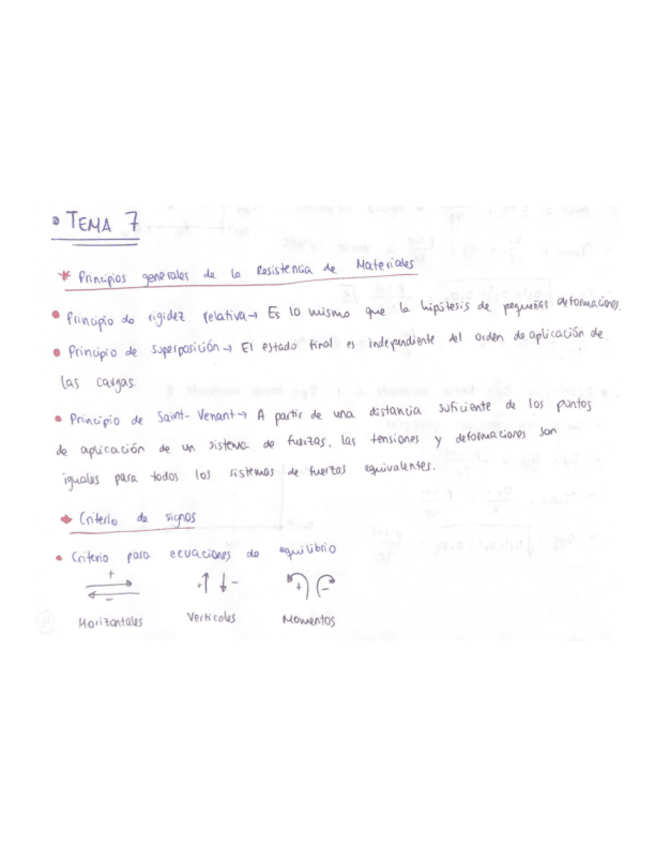 • TEMA 7
* Principios generales de la Resistencia de Materiales
• Principio de rigidez relativa → Es lo mismo que la hipótesis de pequeñas deformaciones.
• Principio de superposición → El estado final es independiente del orden de aplicación de
las cargas.
• Principio de Saint-Venant → A partir de una distancia suficiente de los puntos
de aplicación de un sistema de fuerzas, las tensiones y deformaciones son
iguales para todos los sistemas de fuerzas equivalentes.
Criterio de signos
• Criterio para ecuaciones de equilibrio
+ - + - + -
Horizontales Verticales Momentos